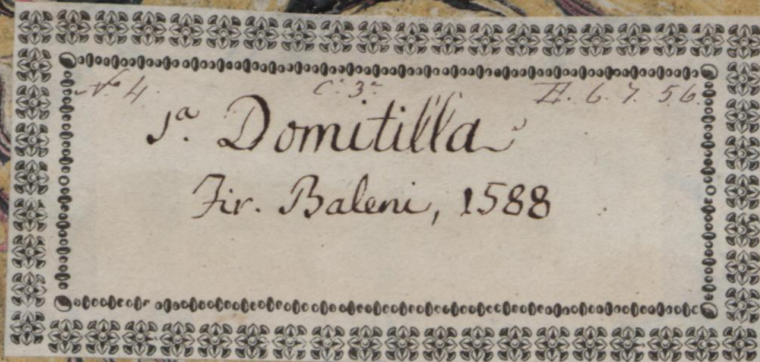 No. 4. C. 3.a II. 6. 7. 56.
Sa. Domitilla
Fir. Baleni, 1588